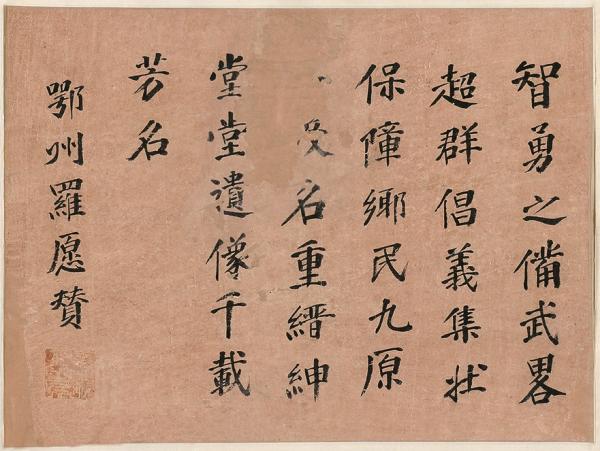 智勇之備武畧
超群倡義集壯
保障鄉民九原
名重縉紳
堂堂遺像千載
芳名
鄂州羅愿贊